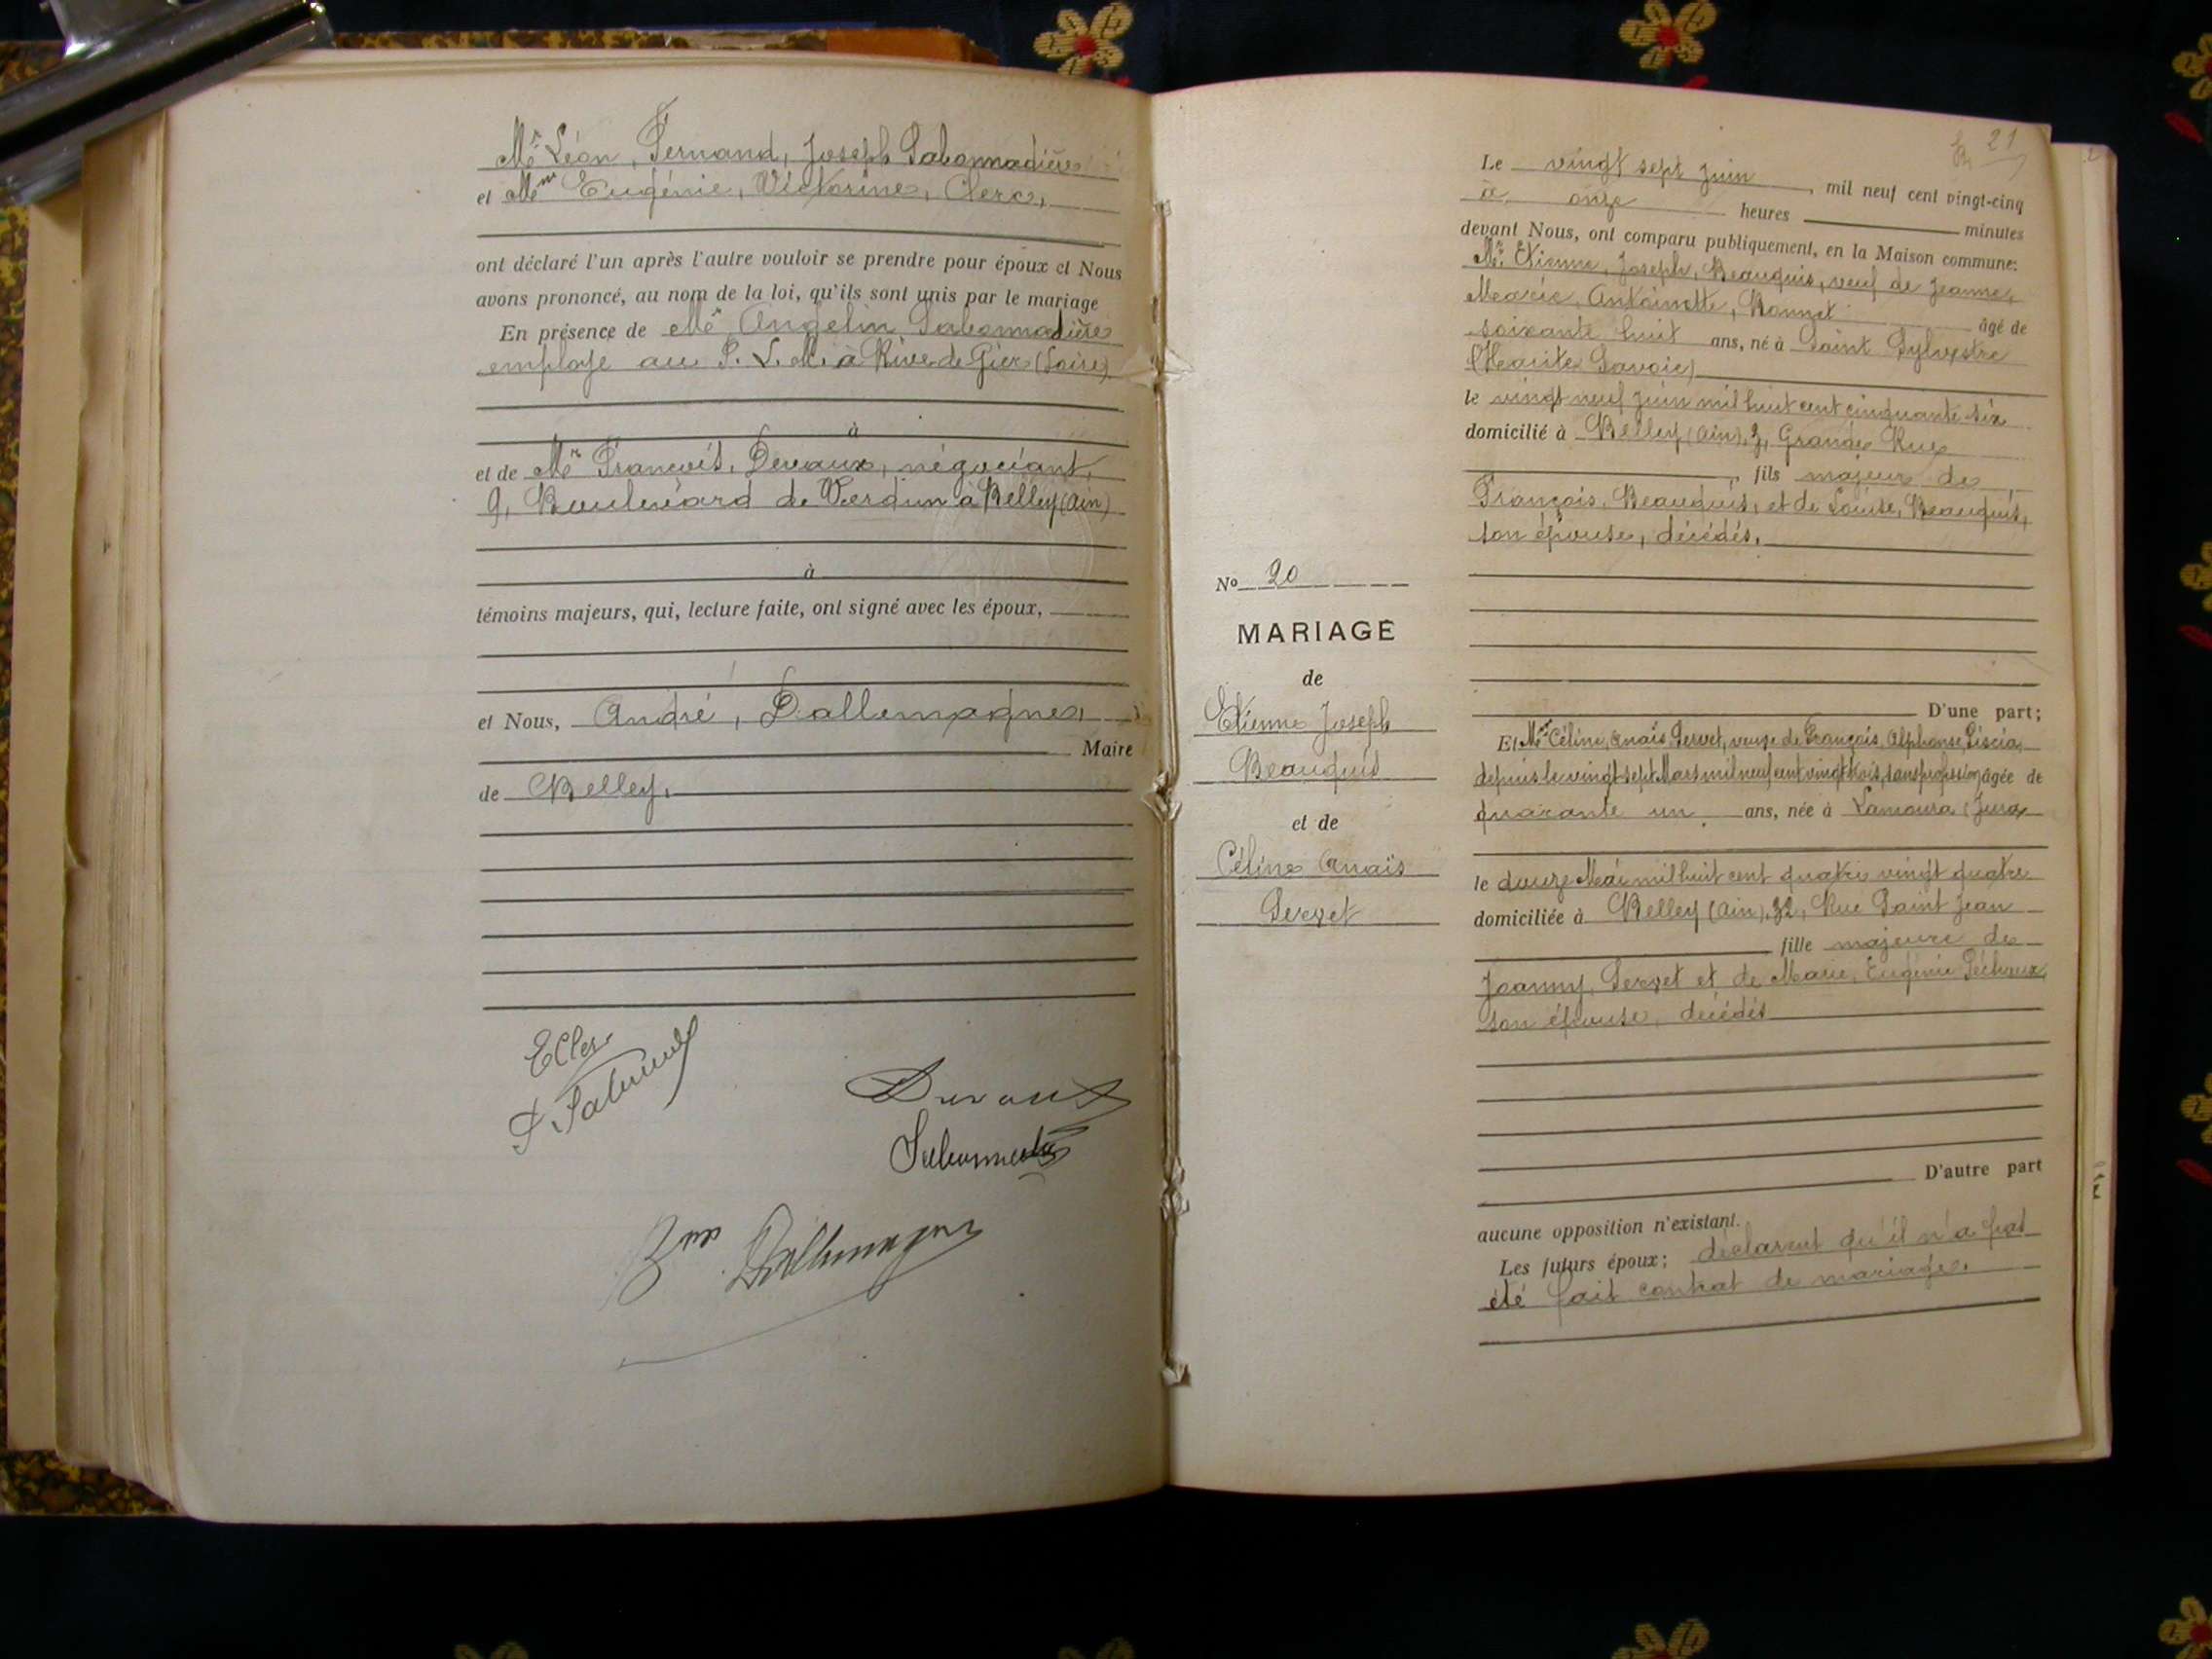 Mr Léon, Fernand, Joseph Sabonnadière
et Mme Eugénie, Victorine, Clerc,
ont déclaré l'un après l'autre vouloir se prendre pour époux et Nous
avons prononcé, au nom de la loi, qu'ils sont unis par le mariage
En présence de Mr Angelin Sabonnadière
employé au P. L. M. à Rive de Gier (Loire)
à
et de Mr François, Devaux, négociant,
9, Boulevard de Verdun à Belley (Ain)
à
témoins majeurs, qui, lecture faite, ont signé avec les époux,
et Nous, André, Dallemagne,
Maire
de Belley.
EClerc
Devaux
Dallemagne
21
Le vingt sept juin, mil neuf cent vingt-cinq
à onze heures minutes
devant Nous, ont comparu publiquement, en la Maison commune:
Mr Etienne, Joseph, Beauquis, veuf de Jeanne,
Marie, Antoinette, Bonnet âgé de
soixante huit ans, né à Saint Sylvestre
(Haute Savoie)
le vingt neuf juin mil huit cent cinquante six
domicilié à Belley (Ain), 3, Grande Rue
fils majeur de
François, Beauquis, et de Louise, Beauquis,
son épouse, décédés.
No 20
MARIAGE
de
Etienne Joseph
Beauquis
et de
Céline Anaïs
Servet
D'une part;
Et Me Céline, Anaïs Servet, veuve de François, Alphonse
depuis le vingt sept Mars mil neuf cent vingt trois, sans profession, âgée de
quarante un ans, née à Lamoura (Jura
le douze Mai mil huit cent quatre vingt quatre
domiciliée à Belley (Ain), 32, Rue Saint Jean
fille majeure de
Joanny, Servet et de Marie, Eugénie
son épouse, décédés
D'autre part
aucune opposition n'existant.
Les futurs époux; déclarent qu'il n'a pas
été fait contrat de mariage.